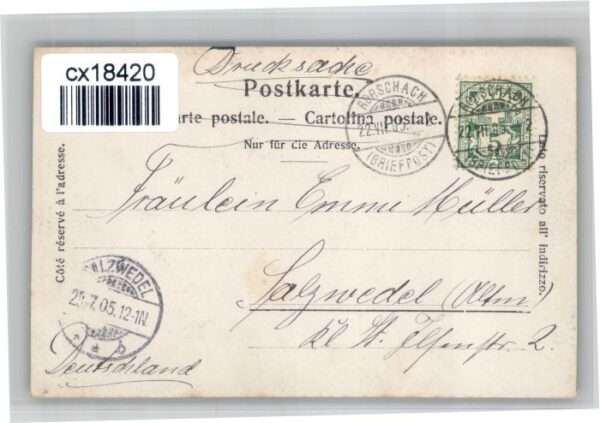 cx18420
Drucksache
Postkarte.
rte postale. — Cartolina postale.
Nur für die Adresse.
Côté réservé à l'adresse.
Lato riservato all' indirizzo.
RORSCHACH
22.VII.05
(BRIEFPOST)
RORSCHACH
22.VII.05
(BRIEFPOST)
Fräulein Emmi Müller
Salzwedel (Altm.)
kl. St. Ilsenstr. 2.
Deutschland
SALZWEDEL
25.7.05.12-1N.
* b